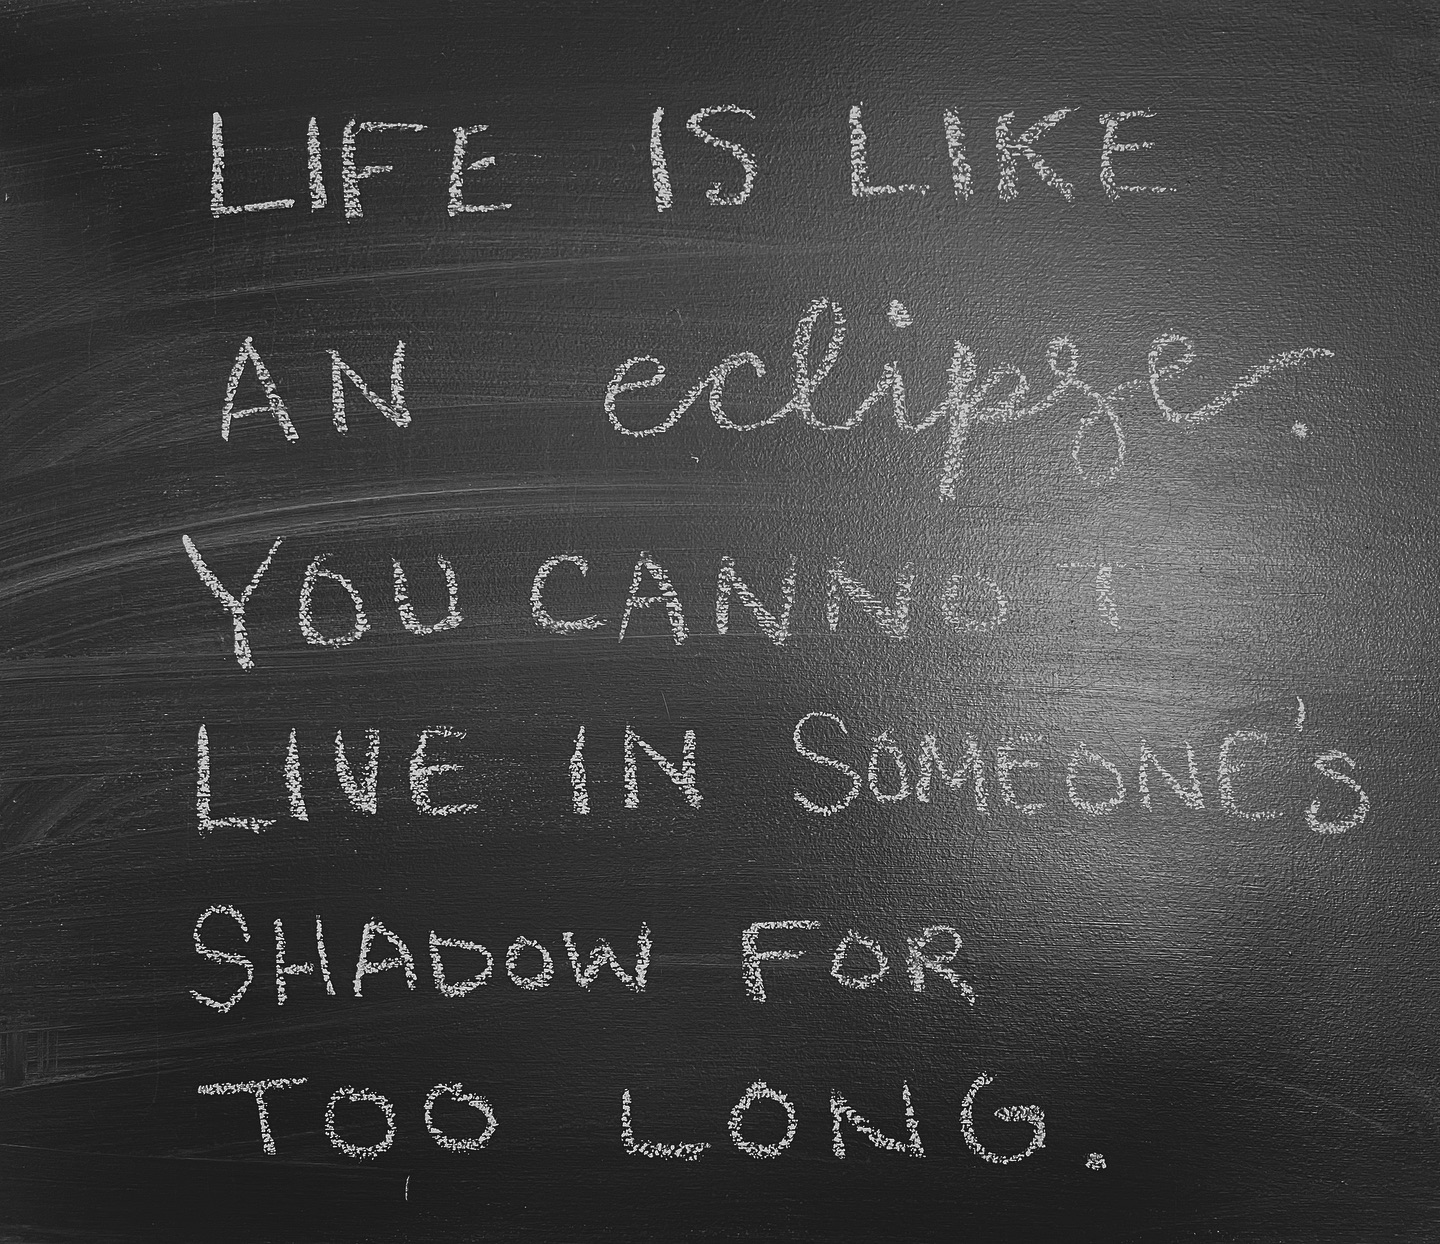 LIFE IS LIKE
AN eclipse.
YOU CANNOT
LIVE IN SOMEONE'S
SHADOW FOR
TOO LONG.